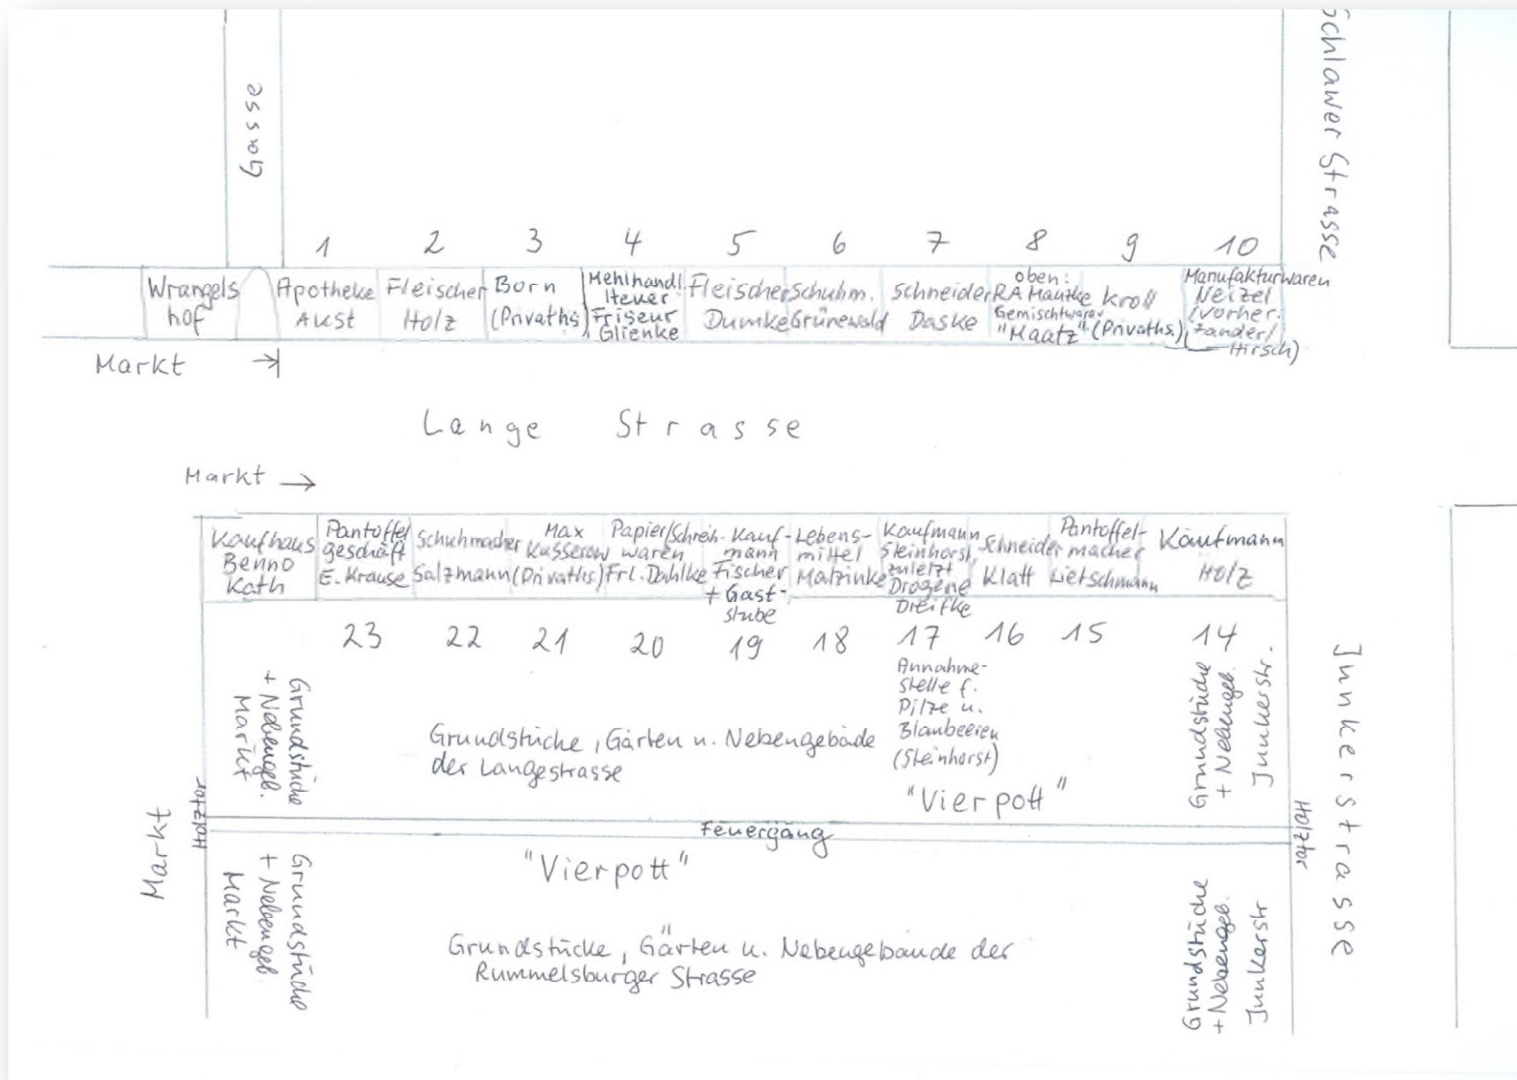 Gasse
Schlawer Strasse
1 2 3 4 5 6 7 8 9 10
Wrangels
hof
Apotheke
Aust
Fleischer
Holz
Born
(Privaths.)
Mehlhandl.
Heuer
Friseur
Glienke
Fleischer
Dumke
Schuhm.
Grünewald
Schneider
Daske
oben:
RA Mantke
Gemischtwaren
"Maatz"
Kroll
(Privaths.)
Manufakturwaren
Neizel
(vorher.
Zander/
Hirsch)
Markt →
Lange Strasse
Markt →
Kaufhaus
Benno
Kath
Pantoffel
geschäft
E. Krause
Schuhmacher
Salzmann
Max
Kusserow
(Privaths)
Papier/Schreib-
waren
Frl. Dahlke
Kauf-
mann
Fischer
+ Gast-
stube
Lebens-
mittel
Matzinke
Kaufmann
Steinhorst,
zuletzt
Drogerie
Dreifke
Schneider
Klatt
Pantoffel-
macher
Lietschmann
Kaufmann
Holz
23 22 21 20 19 18 17 16 15 14
Annahme-
stelle f.
Pilze u.
Blaubeeren
(Steinhorst)
Grundstücke
+ Nebengeb.
Markt
Grundstücke, Gärten u. Nebengebäude
der Langestrasse
"Vierpott"
Grundstücke
+ Nebengeb.
Junkerstr.
Junkerstrasse
Markt
Holztor
Feuergang
Holztor
"Vierpott"
Grundstücke
+ Nebengeb.
Markt
Grundstücke, Gärten u. Nebengebäude der
Rummelsburger Strasse
Grundstücke
+ Nebengeb.
Junkerstr